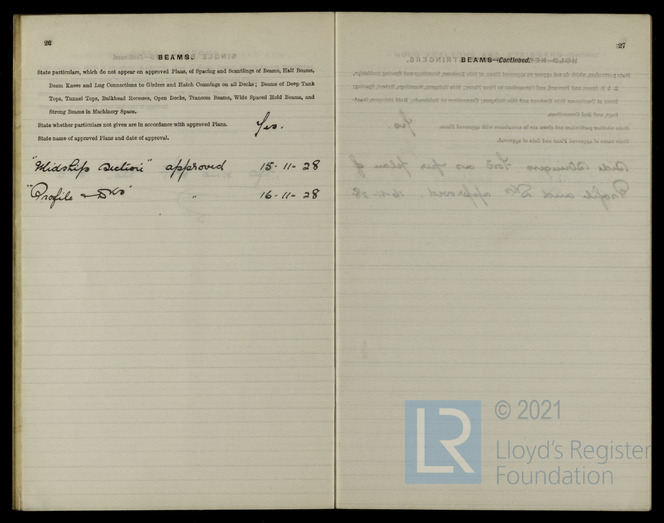 26
BEAMS.
State particulars, which do not appear on approved Plans, of Spacing and Scantlings of Beams, Half Beams,
Beam Knees and Lug Connections to Girders and Hatch Coamings on all Decks; Beams of Deep Tank
Tops, Tunnel Tops, Bulkhead Recesses, Open Decks, Transom Beams, Wide Spaced Hold Beams, and
Strong Beams in Machinery Space.
State whether particulars not given are in accordance with approved Plans. Yes.
State name of approved Plans and date of approval.
"Midship Section" approved 15-11-28
"Profile & Dks" " 16-11-28
27
BEAMS—Continued.
LR © 2021
Lloyd's Register
Foundation